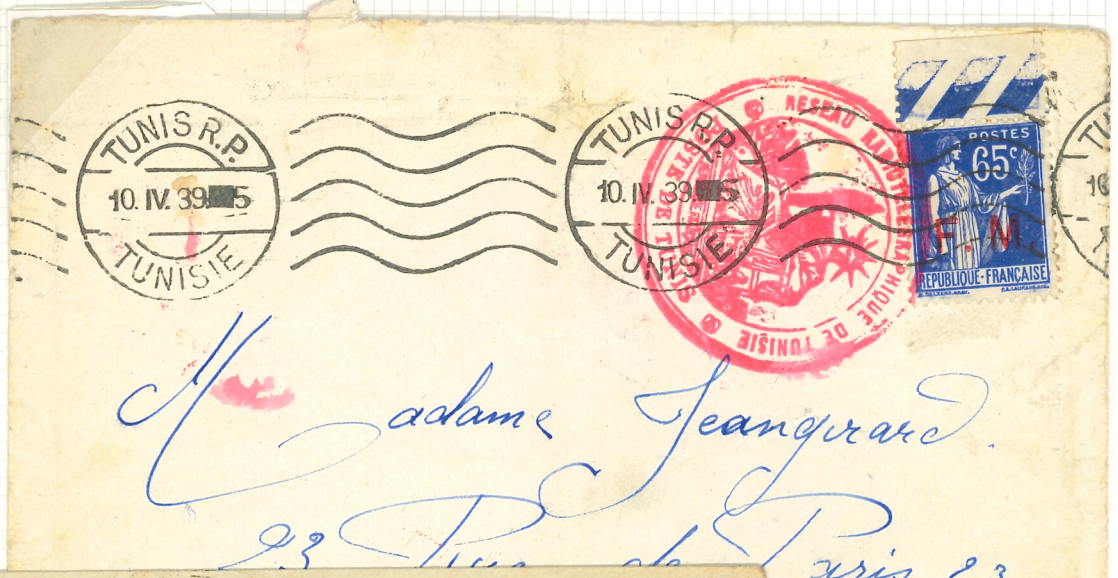 TUNIS R.P.
10. IV. 39 5
TUNISIE
TUNIS R.P.
10. IV. 39 5
TUNISIE
RESEAU RADIOTELEGRAPHIQUE DE TUNISIE
DE TUNIS
POSTES
65c
F. M.
REPUBLIQUE-FRANÇAISE
Madame Jeangirard.
23 Rue de Paris 23